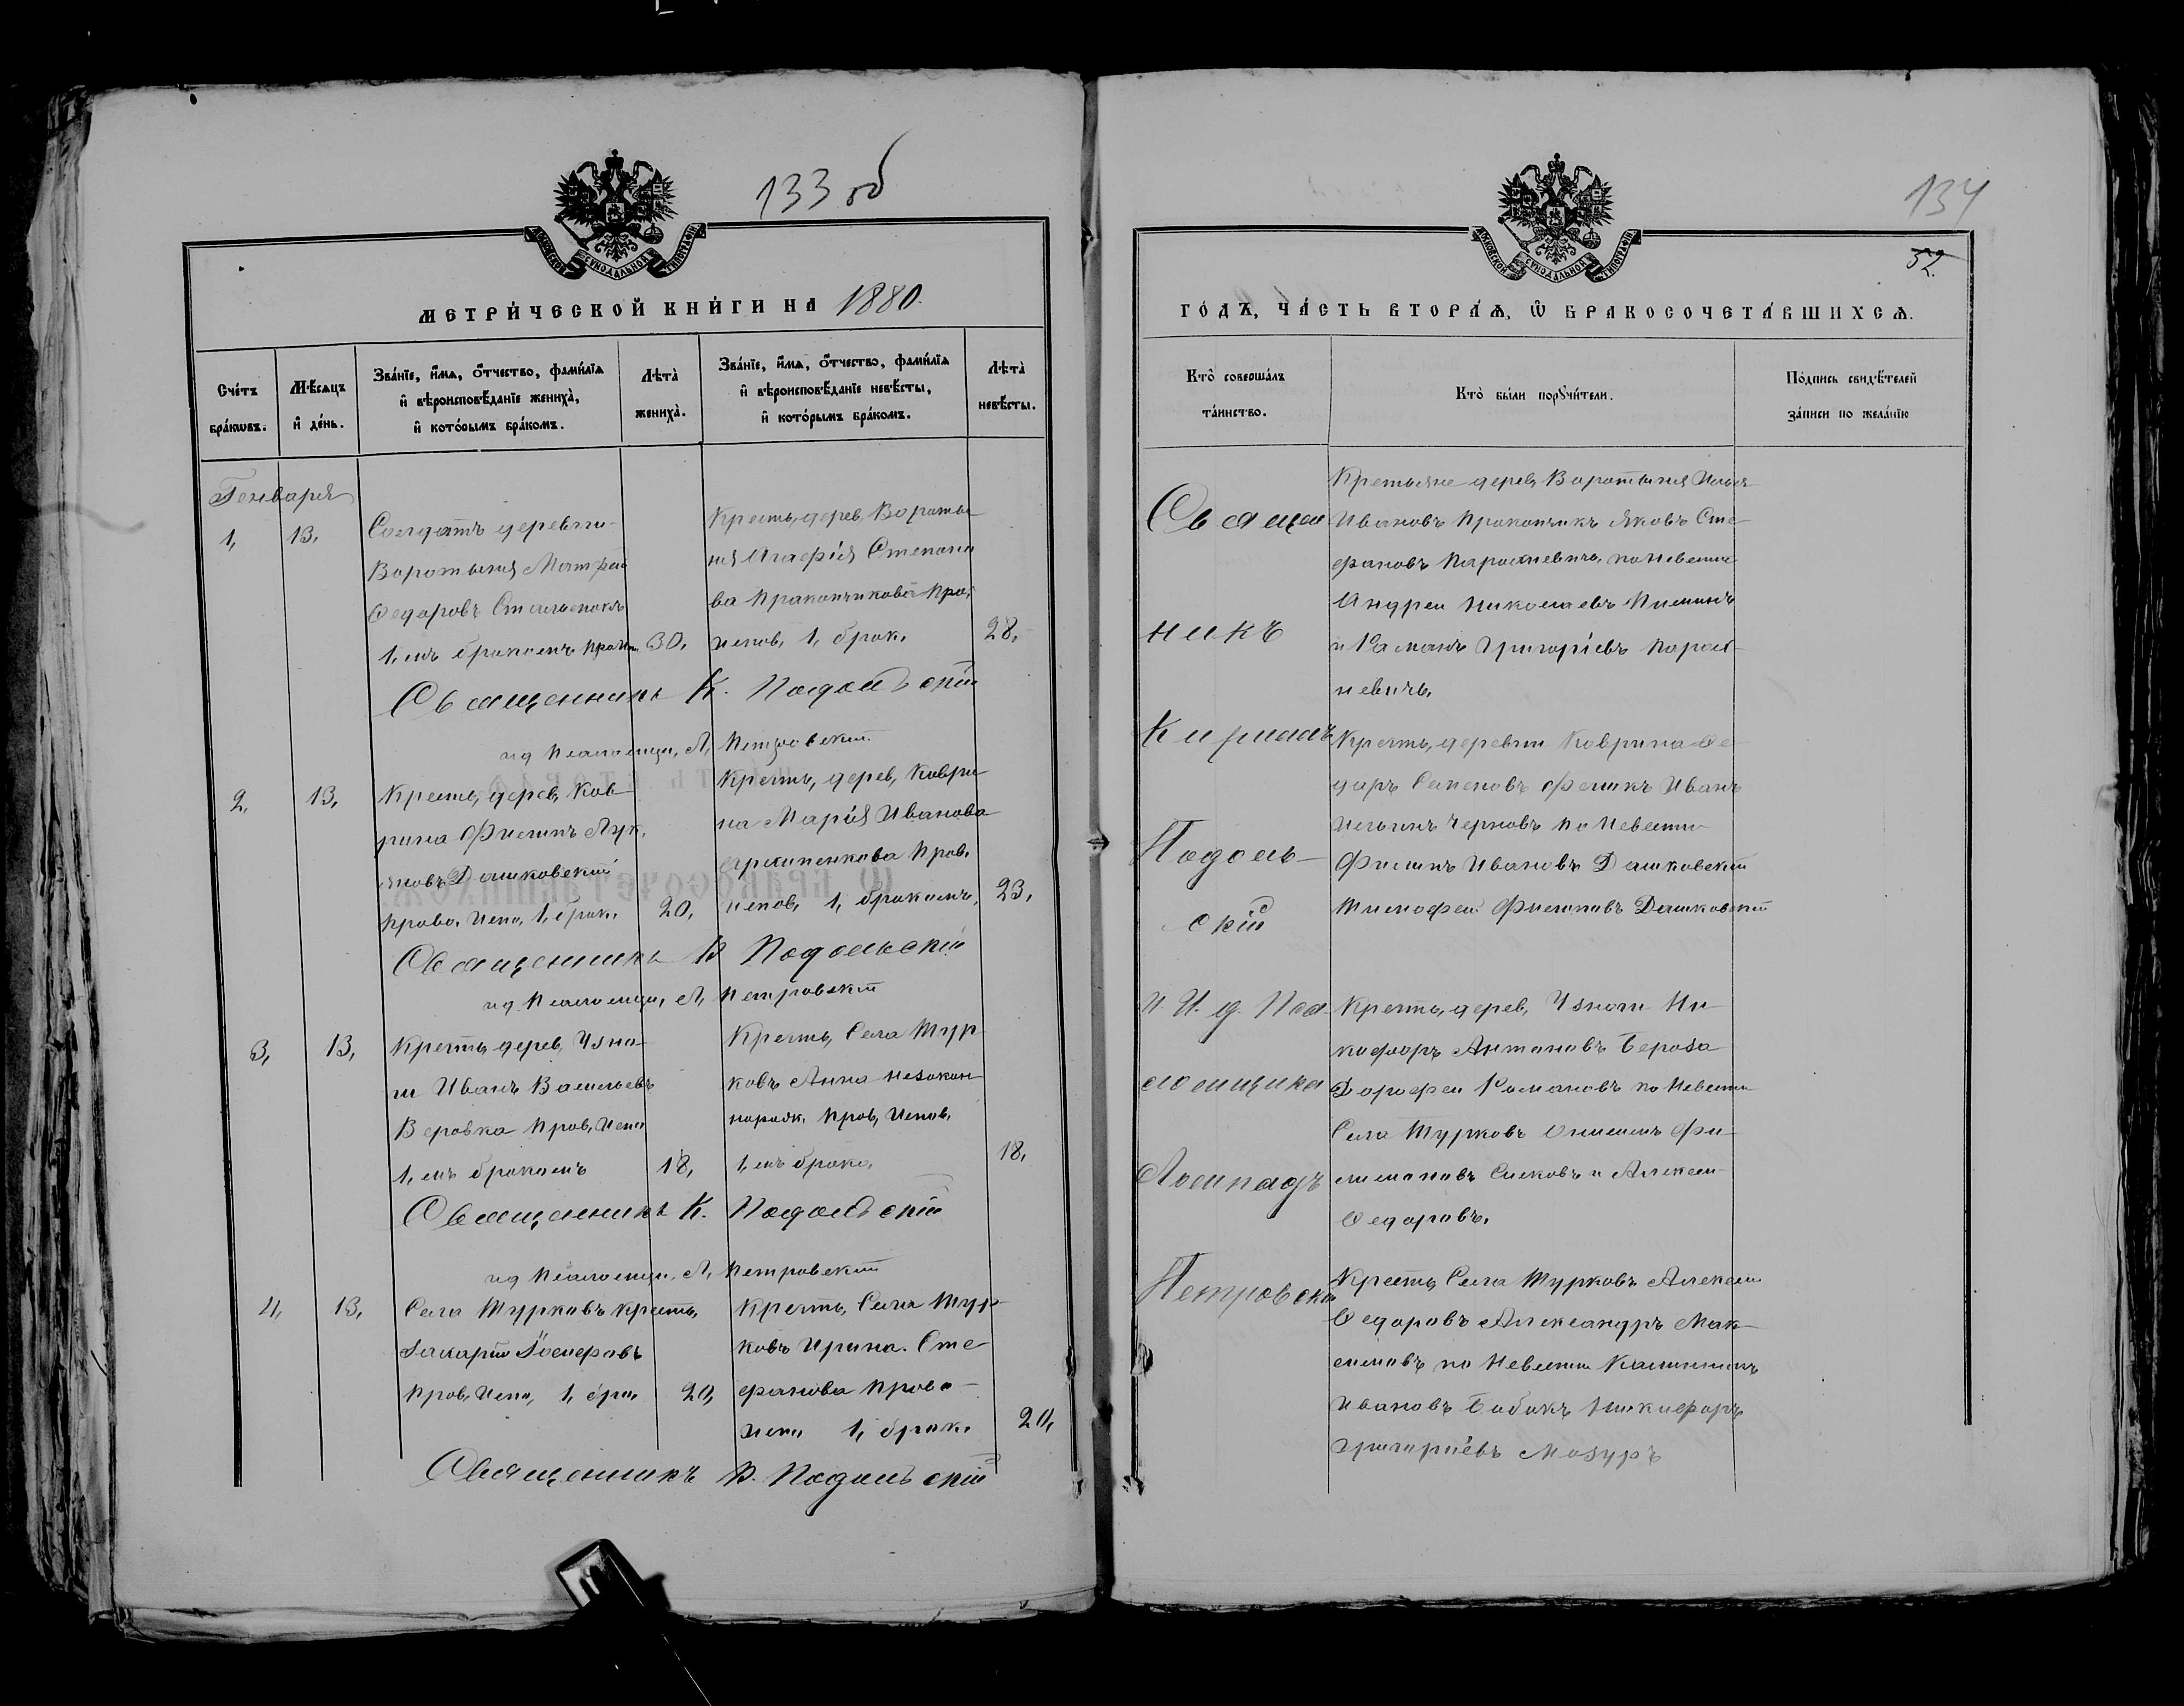 133 об
МОСКОВСКОЙ СУНОДАЛЬНОЙ ТИПОГРАФІИ
МЕТРИ́ЧЕСКОЙ КНИ́ГИ НА 1880.
Сче́тъ бра́кѡвъ.
Мѣ́сяцъ и҆ де́нь.
Зва́нїе, и҆́мѧ, ѻ҆́тчество, фами́лїѧ и҆ вѣроисповѣ́данїе жениха̀, и҆ кото́рымъ бра́комъ.
Лѣта̀ жениха̀.
Зва́нїе, и҆́мѧ, ѻ҆́тчество, фами́лїѧ и҆ вѣроисповѣ́данїе невѣ́сты, и҆ кото́рымъ бра́комъ.
Лѣта̀ невѣ́сты.
Генваря
1, 13,
Солдатъ деревни
Воротыня Матфей
Ѳедоровъ
1, мъ бракомъ 30,
Кресть, дерев, Вороты
ня Агафія Степано
ва Пракопчикова Пра,
испов, 1, брак. 28,
Священникъ К. Подольскій
ид Псаломщ, Л, Петровскій
2, 13,
Крест, дерев, Ков
рина Филипъ Лук,
яновъ Дашковскій
Право, Испо, 1, брак, 20,
Крестъ, дерев, Коври
на Марія Иванова
Прав,
испов, 1, бракомъ, 23,
Священникъ К Подольскій
ид Псаломщ, Л, Петровскій
3, 13,
Крестъ, дерев, Узна
ги Иванъ Васильевъ
Верозка Прав, Испо
1, мъ бракомъ 18,
Крестъ, Села Тур
ковъ Анна Незакон
норож. Прав, Испов,
1, мъ брако, 18,
Священникъ К. Подольскій
ид Псаломщ, Л, Петровскій
4, 13,
Села Турковъ крестъ,
Захарій Іосифовъ
Прав, Испо, 1, бра, 20,
Крестъ, Села Тур
ковъ Ирина. Сте
фанова Право
испо 1, брак. 20,
Священникъ К. Подольскій
134
32.
МОСКОВСКОЙ СУНОДАЛЬНОЙ ТИПОГРАФІИ
ГО́ДЪ, ЧА́СТЬ ВТОРА́Ѧ, Ѡ҆ БРАКОСОЧЕТА́ВШИХСѦ.
Кто̀ соверша́лъ та́инство.
Кто̀ бы́ли порꙋчи́тели.
По́дпись свидѣ́телей за́писи по жела́нїю
Священ
никъ
Кирилъ
Подоль
скій
И. И. д. Пса
ломщика
Леонидъ
Петровскій
Крестьяне дерев, Воротыня Илья
Ивановъ Прокопчикъ Яковъ Сте
фановъ по Невести
Андрей Николаевъ
и Раманъ Григорьевъ
невичь,
Крестъ, деревни Коврина Ѳе
даръ Семеновъ Иванъ
Ильинъ Черновъ По Невести
Филипъ Ивановъ Дашковскій
Тимофей Филиповъ Дашковскій
Крестъ, дерев, Узноги Ни
кофоръ Антановъ Бероза
Дорофей Рамановъ по Невести
Села Турковъ Фи
лимановъ Сысковъ и Алексей
Ѳедоровъ,
Крестъ, Села Турковъ Алексей
Ѳедоровъ Александръ Мак
симовъ по Невести
Ивановъ Бобокъ Никифоръ
Григорьевъ Мазуръ